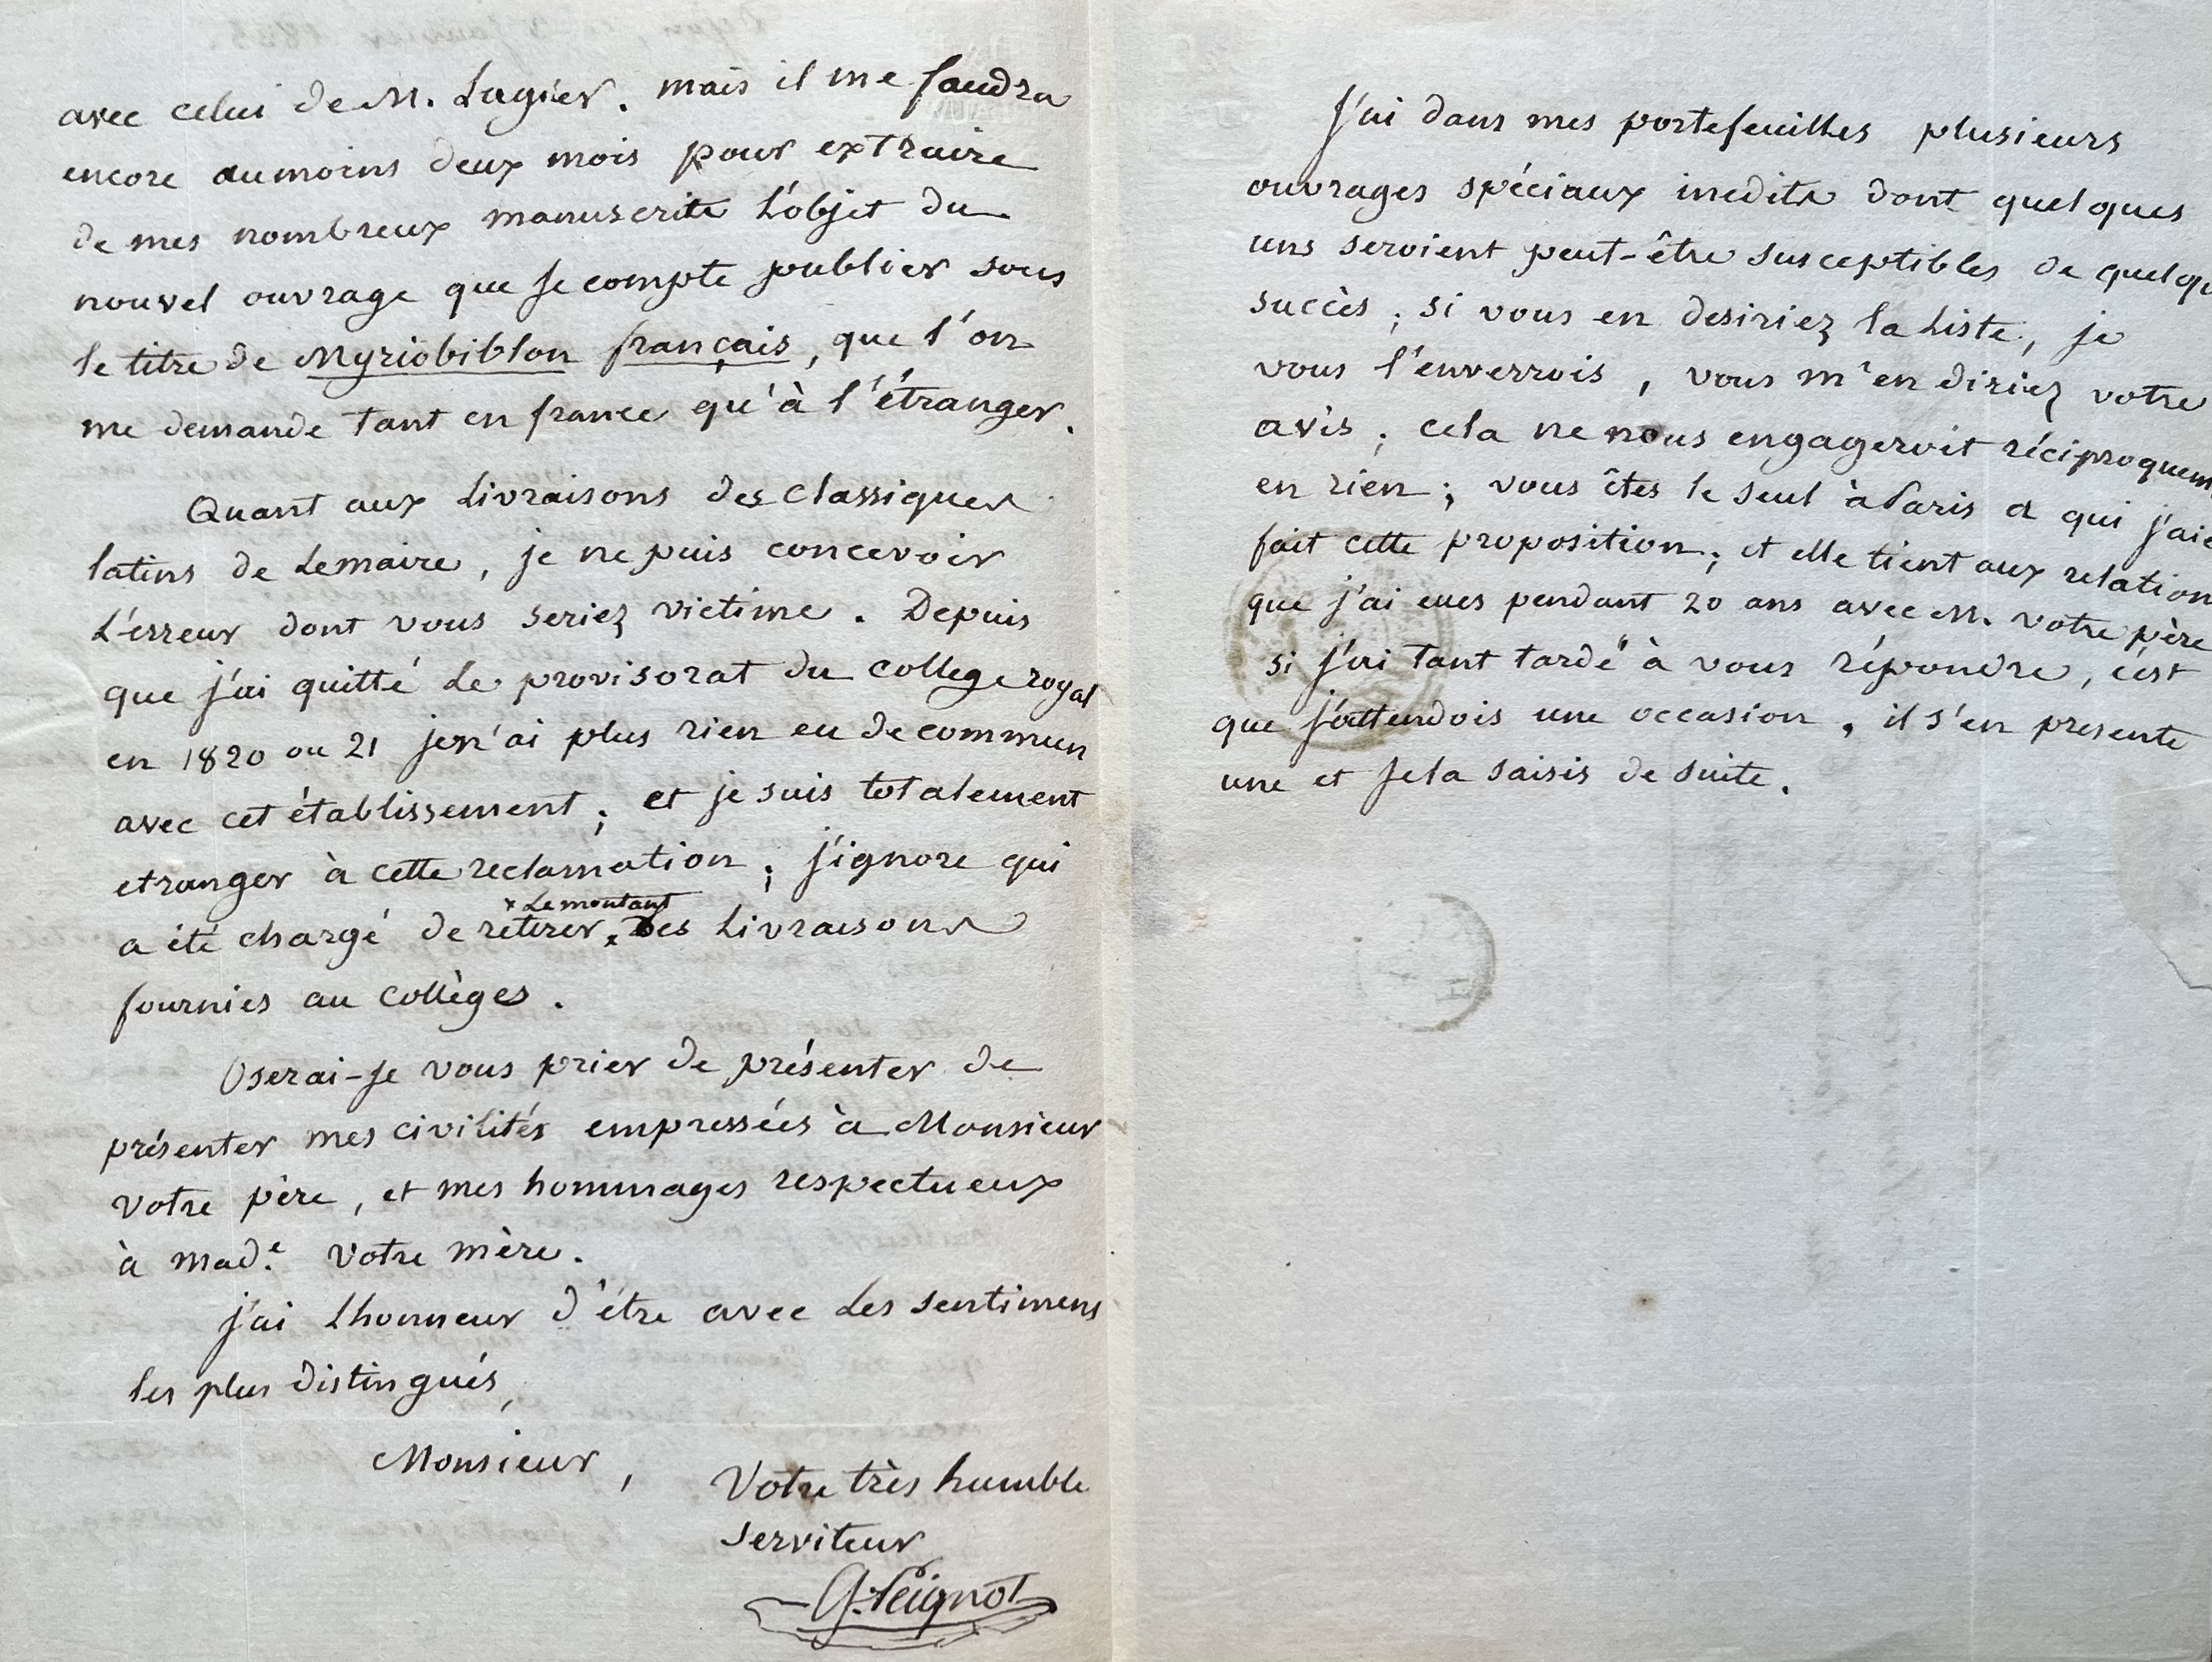 avec celui de M. Lagier. mais il me faudra
encore aumoins deux mois pour extraire
de mes nombreux manuscrits L'objet du
nouvel ouvrage que je compte publier sous
le titre de Myriobiblon français, que l'on
me demande tant en france qu'à l'étranger.
Quant aux Livraisons des Classiques
latins de Lemaire, je ne puis concevoir
L'erreur dont vous seriez victime. Depuis
que j'ai quitté Le provisorat du college royal
en 1820 ou 21 je n'ai plus rien eu de commun
avec cet établissement; et je suis totalement
etranger à cette reclamation; j'ignore qui
× Le montant
a été chargé de retirer × Des Livraisons
fournies au Collèges.
Oserai-je vous prier de présenter de
présenter mes civilités empressées à Monsieur
votre père, et mes hommages respectueux
à mad.e votre mère.
j'ai Lhonneur d'être avec Les sentimens
les plus distingués,
Monsieur,
Votre très humble
serviteur
G. Peignot
J'ai dans mes portefeuilles plusieurs
ouvrages spéciaux inedits dont quelques
uns seroient peut-être susceptibles de quelqu
succès; si vous en desiriez la Liste, je
vous l'enverrois, vous m'en diriez votre
avis; cela ne nous engageroit réciproquem
en rien; vous êtes le seul à Paris a qui j'aie
fait cette proposition; et elle tient aux relation
que j'ai eues pendant 20 ans avec M. votre père
si j'ai tant tardé à vous répondre, c'est
que j'attendois une occasion, il s'en presente
une et je la saisis de suite.